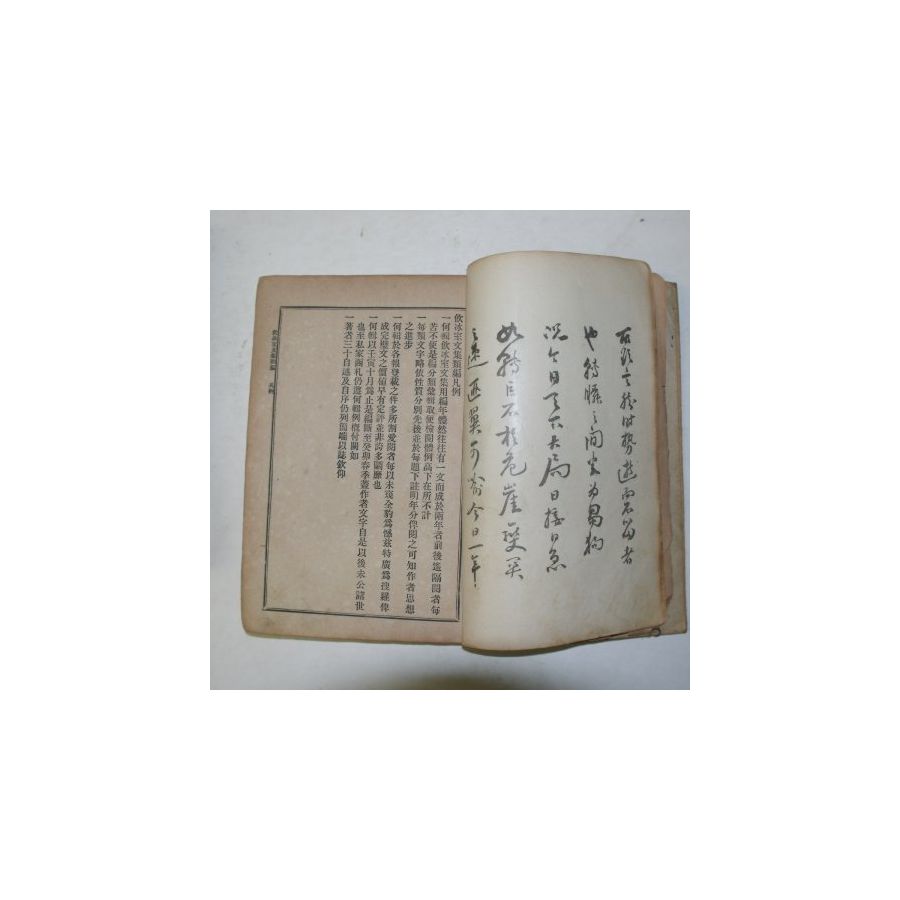 而不 者
也 之間 為芻狗
況今日天下大局日接日急
如轉巨石於危崖變異
之速匪翼可喻今日一年
飲冰室文集類編凡例
一何輯飲冰室文集用編年體然往往有一文而成於兩年者前後遙隔閱者每
苦不便是編分類彙輯取便檢閱體例高下在所不計
一每類文字略依性質分別先後並於每題下註明年分俾閱之可知作者思想
之進步
一何輯於各報登載之件多所割愛閱者每以未窺全豹為憾茲特廣為搜羅俾
成完璧文之價值早有定評並非誇多鬭靡也
一何輯以壬寅十月為止是編斷至癸卯春季蓋作者文字自是以後未公諸世
也至私家函札仍遵何輯例概付闕如
一著者三十自述及自序仍列簡端以誌欽仰